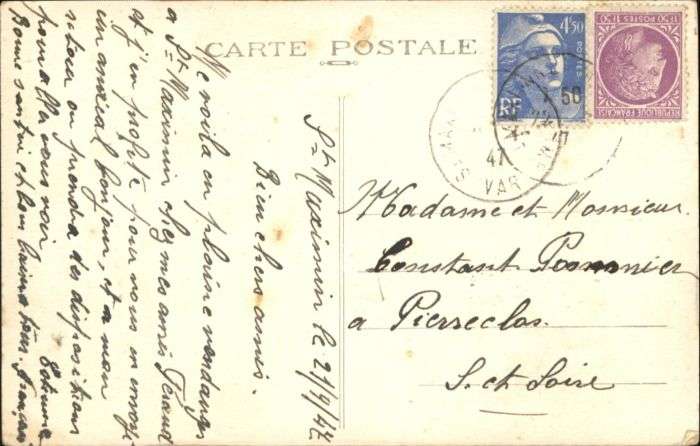 CARTE POSTALE
4F50
POSTES
RF
1F50 POSTES 1F50
REPUBLIQUE FRANÇAISE
ST MAX
47
VAR
50
47
St Maximin le 21/9/47
Bien chers amis.
Me voila en pleine vendanges
a St Maximin chez mes amis Feraud
et j'en profite pour vous en envoyer
un amical bonjour, et a mon
retour on prendra des dispositions
pour aller vous voir
Bonne santé et bien a vous tous.
Madame et Monsieur
Constant Pommier
a Pierreclos
S. et Loire